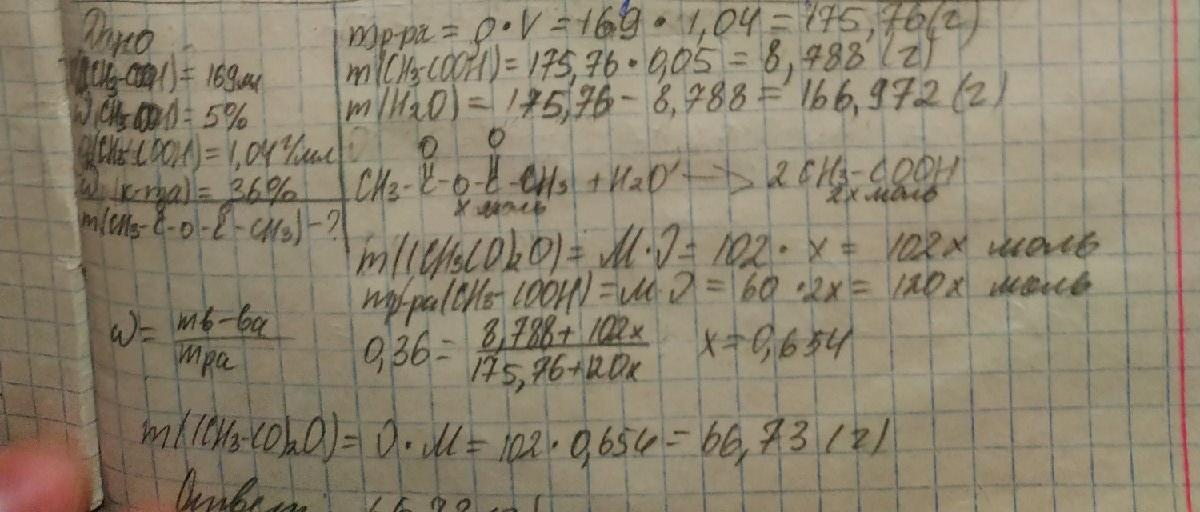 Дано
V(CH3-COOH) = 169мл
ω(CH3-COOH) = 5%
ρ(CH3-COOH) = 1,04 г/мл
ω(к-та) = 36%
m(CH3-C-O-C-CH3) - ?
mр-ра = ρ·V = 169 · 1,04 = 175,76(г)
m(CH3-COOH) = 175,76 · 0,05 = 8,788 (г)
m(H2O) = 175,76 - 8,788 = 166,972(г)
O O
CH3-C-O-C-CH3 + H2O → 2CH3-COOH
x моль 2x моль
m((CH3CO)2O) = M·ν = 102 · x = 102x моль
mр-ра(CH3-COOH) = M·ν = 60 · 2x = 120x моль
ω = mв-ва / mра
0,36 = 8,788 + 102x / 175,76 + 120x x = 0,654
m((CH3-CO)2O) = ν · M = 102 · 0,654 = 66,73 (г)
Ответ: